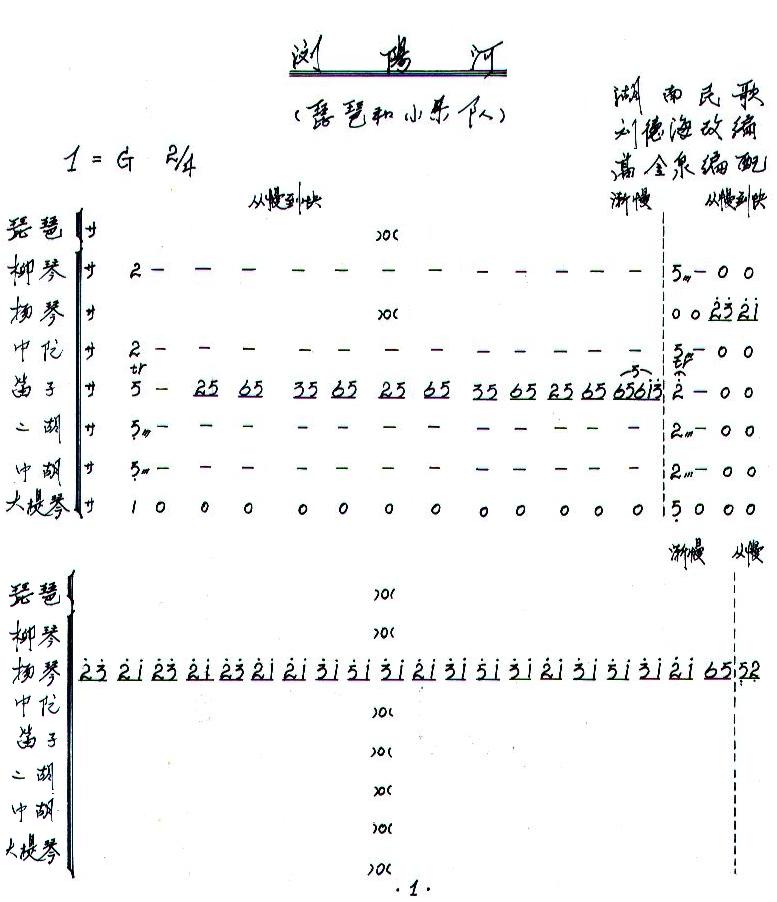 浏陽河
(琵琶和小乐队)
湖南民歌
刘德海改编
萬金泉编配
1=G 2/4
从慢到快 渐慢 从慢到快
琵琶 サ )0(
柳琴 サ 2 - - - - - - - - - - - - 5 - 0 0
扬琴 サ )0( 0 0 2̇3̇ 2̇1̇
中阮 サ 2 - - - - - - - - - - - - 5 - 0 0
tr tr
笛子 サ 5 - 25 65 35 65 25 65 35 65 25 65 656i3 2̇ - 0 0
二胡 サ 5̣ - - - - - - - - - - - - 2 - 0 0
中胡 サ 5̣ - - - - - - - - - - - - 2 - 0 0
大提琴 サ 1 0 0 0 0 0 0 0 0 0 0 0 0 5̣ 0 0 0
渐慢 从慢
琵琶 )0(
柳琴 )0(
扬琴 2̇3̇ 2̇1̇ 2̇3̇ 2̇1̇ 2̇3̇ 2̇1̇ 2̇1̇ 3̇1̇ 5̇1̇ 3̇1̇ 2̇1̇ 3̇1̇ 5̇1̇ 3̇1̇ 2̇1̇ 3̇1̇ 5̇1̇ 3̇1̇ 2̇1̇ 65 5̣2̣
中阮 )0(
笛子 )0(
二胡 )0(
中胡 )0(
大提琴 )0(
·1·